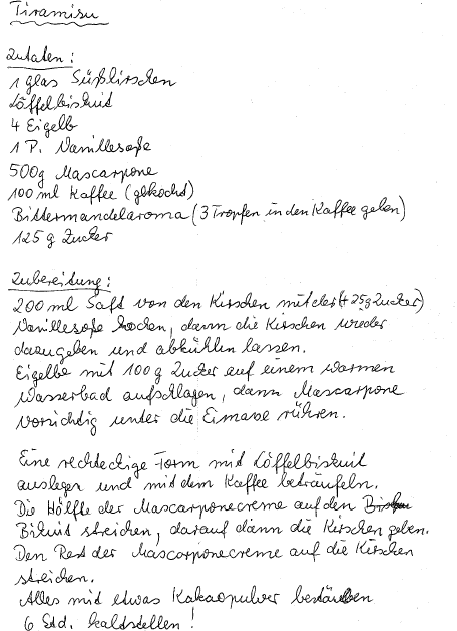 Tiramisu
Zutaten:
1 Glas Süßkirschen
Löffelbiskuit
4 Eigelb
1 P. Vanillesoße
500g Mascarpone
100 ml Kaffee (gekocht)
Bittermandelaroma (3 Tropfen in den Kaffee geben)
125 g Zucker
Zubereitung:
200 ml Saft von den Kirschen mit der (+ 25g Zucker)
Vanillesoße kochen, dann die Kirschen wieder
dazugeben und abkühlen lassen.
Eigelbe mit 100 g Zucker auf einem warmen
Wasserbad aufschlagen, dann Mascarpone
vorsichtig unter die Eimasse rühren.
Eine rechteckige Form mit Löffelbiskuit
auslegen und mit dem Kaffee beträufeln.
Die Hälfte der Mascarponecreme auf den
Biskuit streichen, darauf dann die Kirschen geben.
Den Rest der Mascarponecreme auf die Kirschen
streichen.
Alles mit etwas Kakaopulver bestäuben
6 Std. kaltstellen!